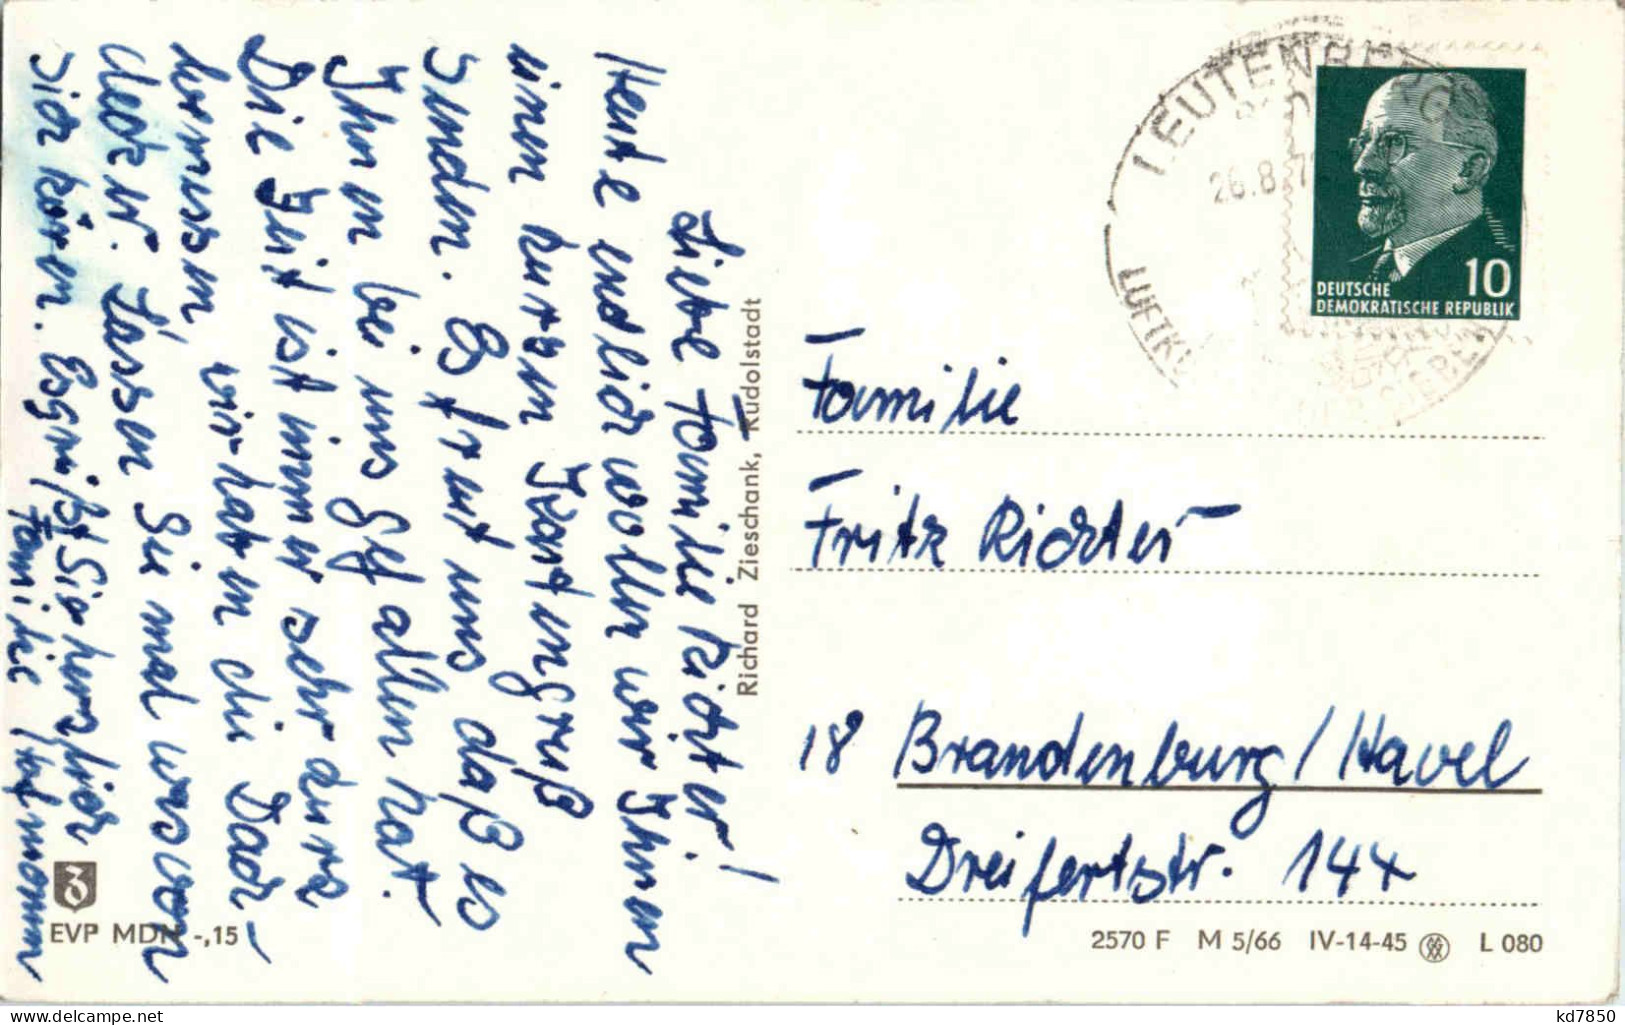 Liebe Familie Richter!
Heute endlich wollen wir Ihnen
einen kurzen Kartengruß
senden. Es freut uns daß es
Ihnen bei uns gefallen hat.
Die Zeit ist immer sehr kurz
bemessen, wir haben die Dach-
decker. Lassen Sie mal was von
sich hören. Es grüßt Sie herzlich
Familie Hofmann
Richard Zieschank, Rudolstadt
EVP MDN -,15
LEUTENBERG
26.8.7
LUFTKU
DEUTSCHE
DEMOKRATISCHE REPUBLIK
10
Familie
Fritz Richter
18 Brandenburg/Havel
Dreifertstr. 144
2570 F M 5/66 IV-14-45 L 080
kd7850